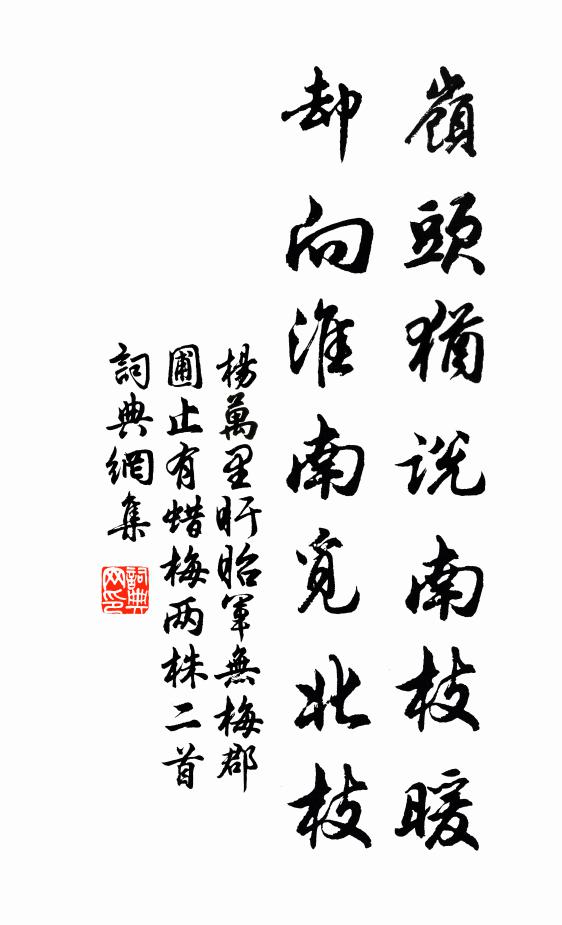 嶺頭猶说南枝暖
却向淮南覓北枝
楊萬里盱眙軍無梅郡
圃止有蜡梅两株二首
詞典網集
詞典網印